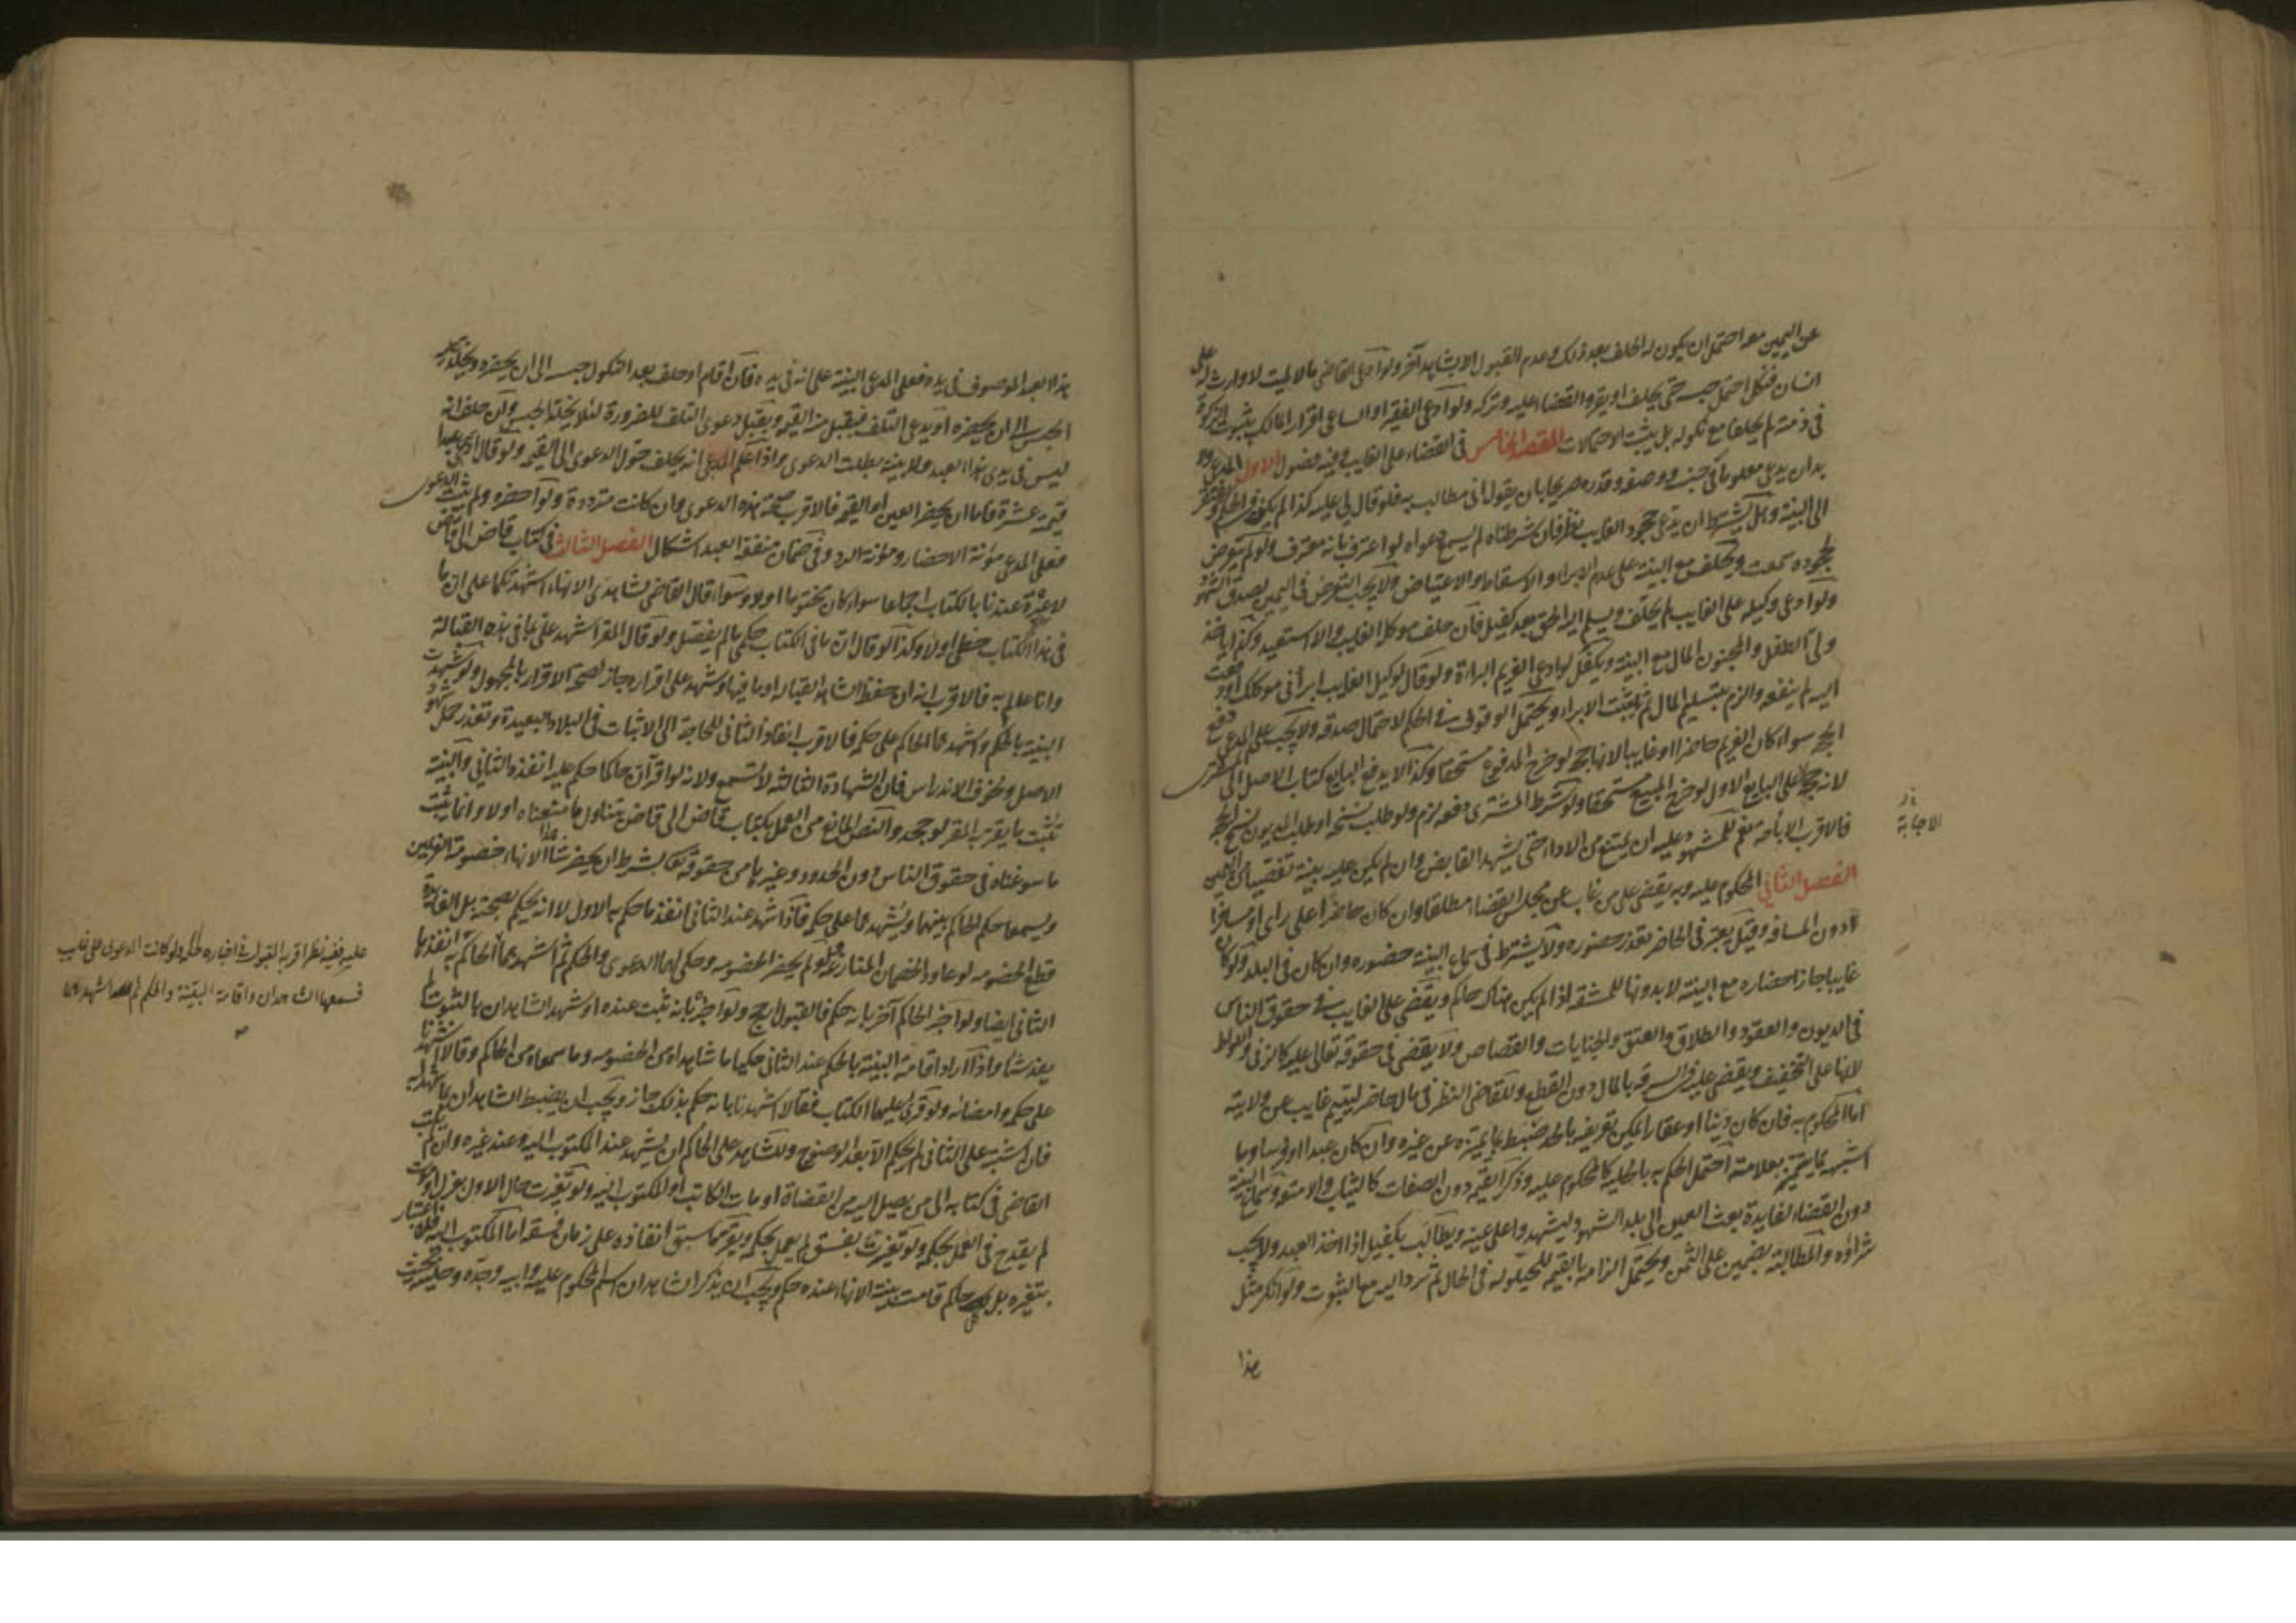 عن اليمين معه احتمل ان يكون له الحلف بعد ذلك وعدم القبول الا بشاهد آخر ولو ادعى القاضى مالا لميت لا وارث له على
انسان فنكل احتمل حبسه حتى يحلف او يقر والقضاء عليه وتركه ولو ادعى الفقير او الساعى اقرار المالك بثبوت الزكوة
فى ذمته لم يحلفا مع نكوله بل يثبت الاحتمالات المقصد الخامس فى القضاء على الغايب وفيه فصول الاول المدعى ولا
بد ان يدعى معلوما فى جنسه ووصفه وقدره صريحا بان يقول انى مطالب به فلو قال لى عليه كذا لم يكف فى الحكم ويفتقر
الى البينة وهل يشترط ان يدعى جحود الغايب نظر فان شرطناه لم يسمع دعواه لو اعترف بانه معترف ولو لم يتعرض
لجحوده سمعت ويحلف مع البينة على عدم الابراء والاسقاط والاعتياض ولا يجب التعرض فى اليمين لصدق الشهود
ولو ادعى وكيله على الغايب لم يحلف ويسلم اليه الحق بعد كفيل فان حلف موكل الغايب والا استعيد وكذا ياخذ
ولى الطفل والمجنون المال مع البينة ويكفل لو ادعى الغريم البراءة ولو قال لوكيل الغايب ابرأنى موكلك او دفعت
اليه لم ينفعه والزم بتسليم المال ثم يثبت الابراء ويحتمل الوقوف فى الحكم لاحتمال صدقه ولا يجب على المدعى دفع
الحجة سواء كان الغريم حاضرا او غايبا لانها حجة لو خرج المدفوع مستحقا وكذا لا يدفع البايع كتاب الاصل الى المشترى
لانه حجة على البايع الاول لو خرج المبيع مستحقا ولو شرط المشترى دفعه لزم ولو طلب نسخه او طلب المديون نسخ الحجة
فالاقرب الاجابة نعم للمشهود عليه ان يمتنع من الاداء حتى يشهد القابض وان لم يكن عليه بينة تفصيا من اليمين
الفصل الثانى المحكوم عليه وبه يقضى على من غاب عن مجلس القضاء مطلقا وان كان حاضرا على راى او مسافرا
دون المسافة وقيل يعتبر فى الحاضر تعذر حضوره ولا يشترط فى سماع البينة حضوره وان كان فى البلد ولو كان
غايبا جاز احضاره مع البينة لا بدونها للمشقة اذا لم يكن هناك حاكم ويقضى على الغايب فى حقوق الناس
فى الديون والعقود والطلاق والعتق والجنايات والقصاص ولا يقضى فى حقوقه تعالى عليه كالزنى واللواط
لانها على التخفيف ويقضى عليه فى السرقة بالمال دون القطع وللقاضى النظر فى مال حاضر ليتيم غايب عن ولايته
اما المحكوم به فان كان دينا او عقارا يمكن تعريفه بالحد ضبط بما يميزه عن غيره وان كان عبدا او فرسا وما
اشبهه مما يتميز بعلامة احتمل الحكم به بالحلية كالمحكوم عليه وذكر القيمة دون الصفات كالثياب والامتعة وسماع البينة
دون القضاء لفايدة بعث العين الى بلد الشهود ليشهدوا على عينه ويطالب بكفيل اذا اخذ العبد ولا يجب
شراؤه والمطالبة بضمين على الثمن ويحتمل الزامه بالقيمة للحيلولة فى الحال ثم ترد اليه مع الثبوت ولو انكر مثل
هذا
الاجابة
هذا العبد الموصوف فى يده فعلى المدعى البينة على انه فى يده فان اقام او حلف بعد النكول حبس الى ان يحضره ويخلد عليه
الحبس الى ان يحضره او يدعى التلف فيقبل منه القيمة ويقبل دعوى التلف للضرورة لئلا يخلد الحبس وان حلف انه
ليس فى يدى هذا العبد ولا بينة بطلت الدعوى واذا علم المدعى انه يحلف حول الدعوى الى القيمة ولو قال ادعى عبدا
قيمته عشرة فاما ان يحضر العين او القيمة فالاقرب صحة هذه الدعوى وان كانت مترددة ولو احضره ولم يثبت الدعوى
فعلى المدعى مؤنة الاحضار ومؤنة الرد وفى ضمان منفعة العبد اشكال الفصل الثالث فى كتاب قاض الى قاض
لا عبرة عندنا بالكتاب اجماعا سواء كان مختوما او لا وسواء قال القاضى لشاهدى الانهاء اشهدتكما على ان ما
فى هذا الكتاب خطى او لا وكذا لو قال ان ما فى الكتاب حكمى ما لم يفصل ولو قال المقر اشهد على بما فى هذه القبالة
وانا عالم به فالاقرب انه ان حفظ الشاهد القبالة او ما فيها وشهد على اقراره جاز لصحة الاقرار بالمجهول ولو شهدت
البينة بالحكم واشهدهما الحاكم على حكمه فالاقرب انفاذ الثانى للحاجة الى الاثبات فى البلاد البعيدة وتعذر حمل شهود
الاصل وخوف الاندراس فان الشهادة الثالثة لا تسمع ولانه لو اقر ان حاكما حكم عليه انفذه الثانى والبينة
تثبت ما يقر به المقر لو جحد والنص المانع من العمل بكتاب قاض الى قاض يتناول ما منعناه اولا وانما يثبت
ما سوغناه فى حقوق الناس دون الحدود وغيرها من حقوقه تعالى بشرط ان يحضر شاهدا الانهاء خصومة الغريمين
ويسمعا حكم الحاكم بينهما ويشهدهما على حكمه فاذا شهدا عند الثانى انفذ ما حكم به الاول لا انه يحكم بصحته بل الفايدة
قطع الخصومة لو عاود الخصمان المنازعة فلو لم يحضر الخصومة وحكى لهما الدعوى والحكم ثم اشهدهما الحاكم به انفذها
الثانى ايضا ولو اخبر الحاكم آخر بانه حكم فالقبول ارجح ولو اخبر بانه ثبت عنده او شهد الشاهدان بالثبوت لم
يفد شيئا واذا اراد اقامة البينة بالحكم عند الثانى حكيا ما شاهداه من الخصومة وما سمعاه من الحاكم وقالا اشهدنا
على حكمه وامضائه ولو قرئ عليهما الكتاب فقالا اشهدنا بانه حكم بذلك جاز ويجب ان يضبط الشاهدان ما شهدا به
فان اشتبه على الثانى لم يحكم الا بعد الوضوح وللشاهد على الحاكم ان يشهد عند المكتوب اليه وعند غيره وان لم يكتب
القاضى فى كتابه الى من يصل اليه من القضاة او مات الكاتب او المكتوب اليه ولو تغيرت حال الاول بعزل او موت
لم يقدح فى العمل بحكمه ولو تغيرت بفسق لم يعمل بحكمه ويقر ما سبق انفاذه على زمان فسقه اما المكتوب اليه فلا اعتبار
بتغيره بل كل حاكم قامت بينة الانهاء عنده حكم ويجب ان يذكر الشاهدان اسم المحكوم عليه وابيه وجده وحليته بحيث
عليه ففيه نظر اقربه القبول فى اخباره كحكمه ولو كانت الدعوى على غايب
فسمعها الشاهدان واقامة البينة والحكم ثم اشهدهما
صح